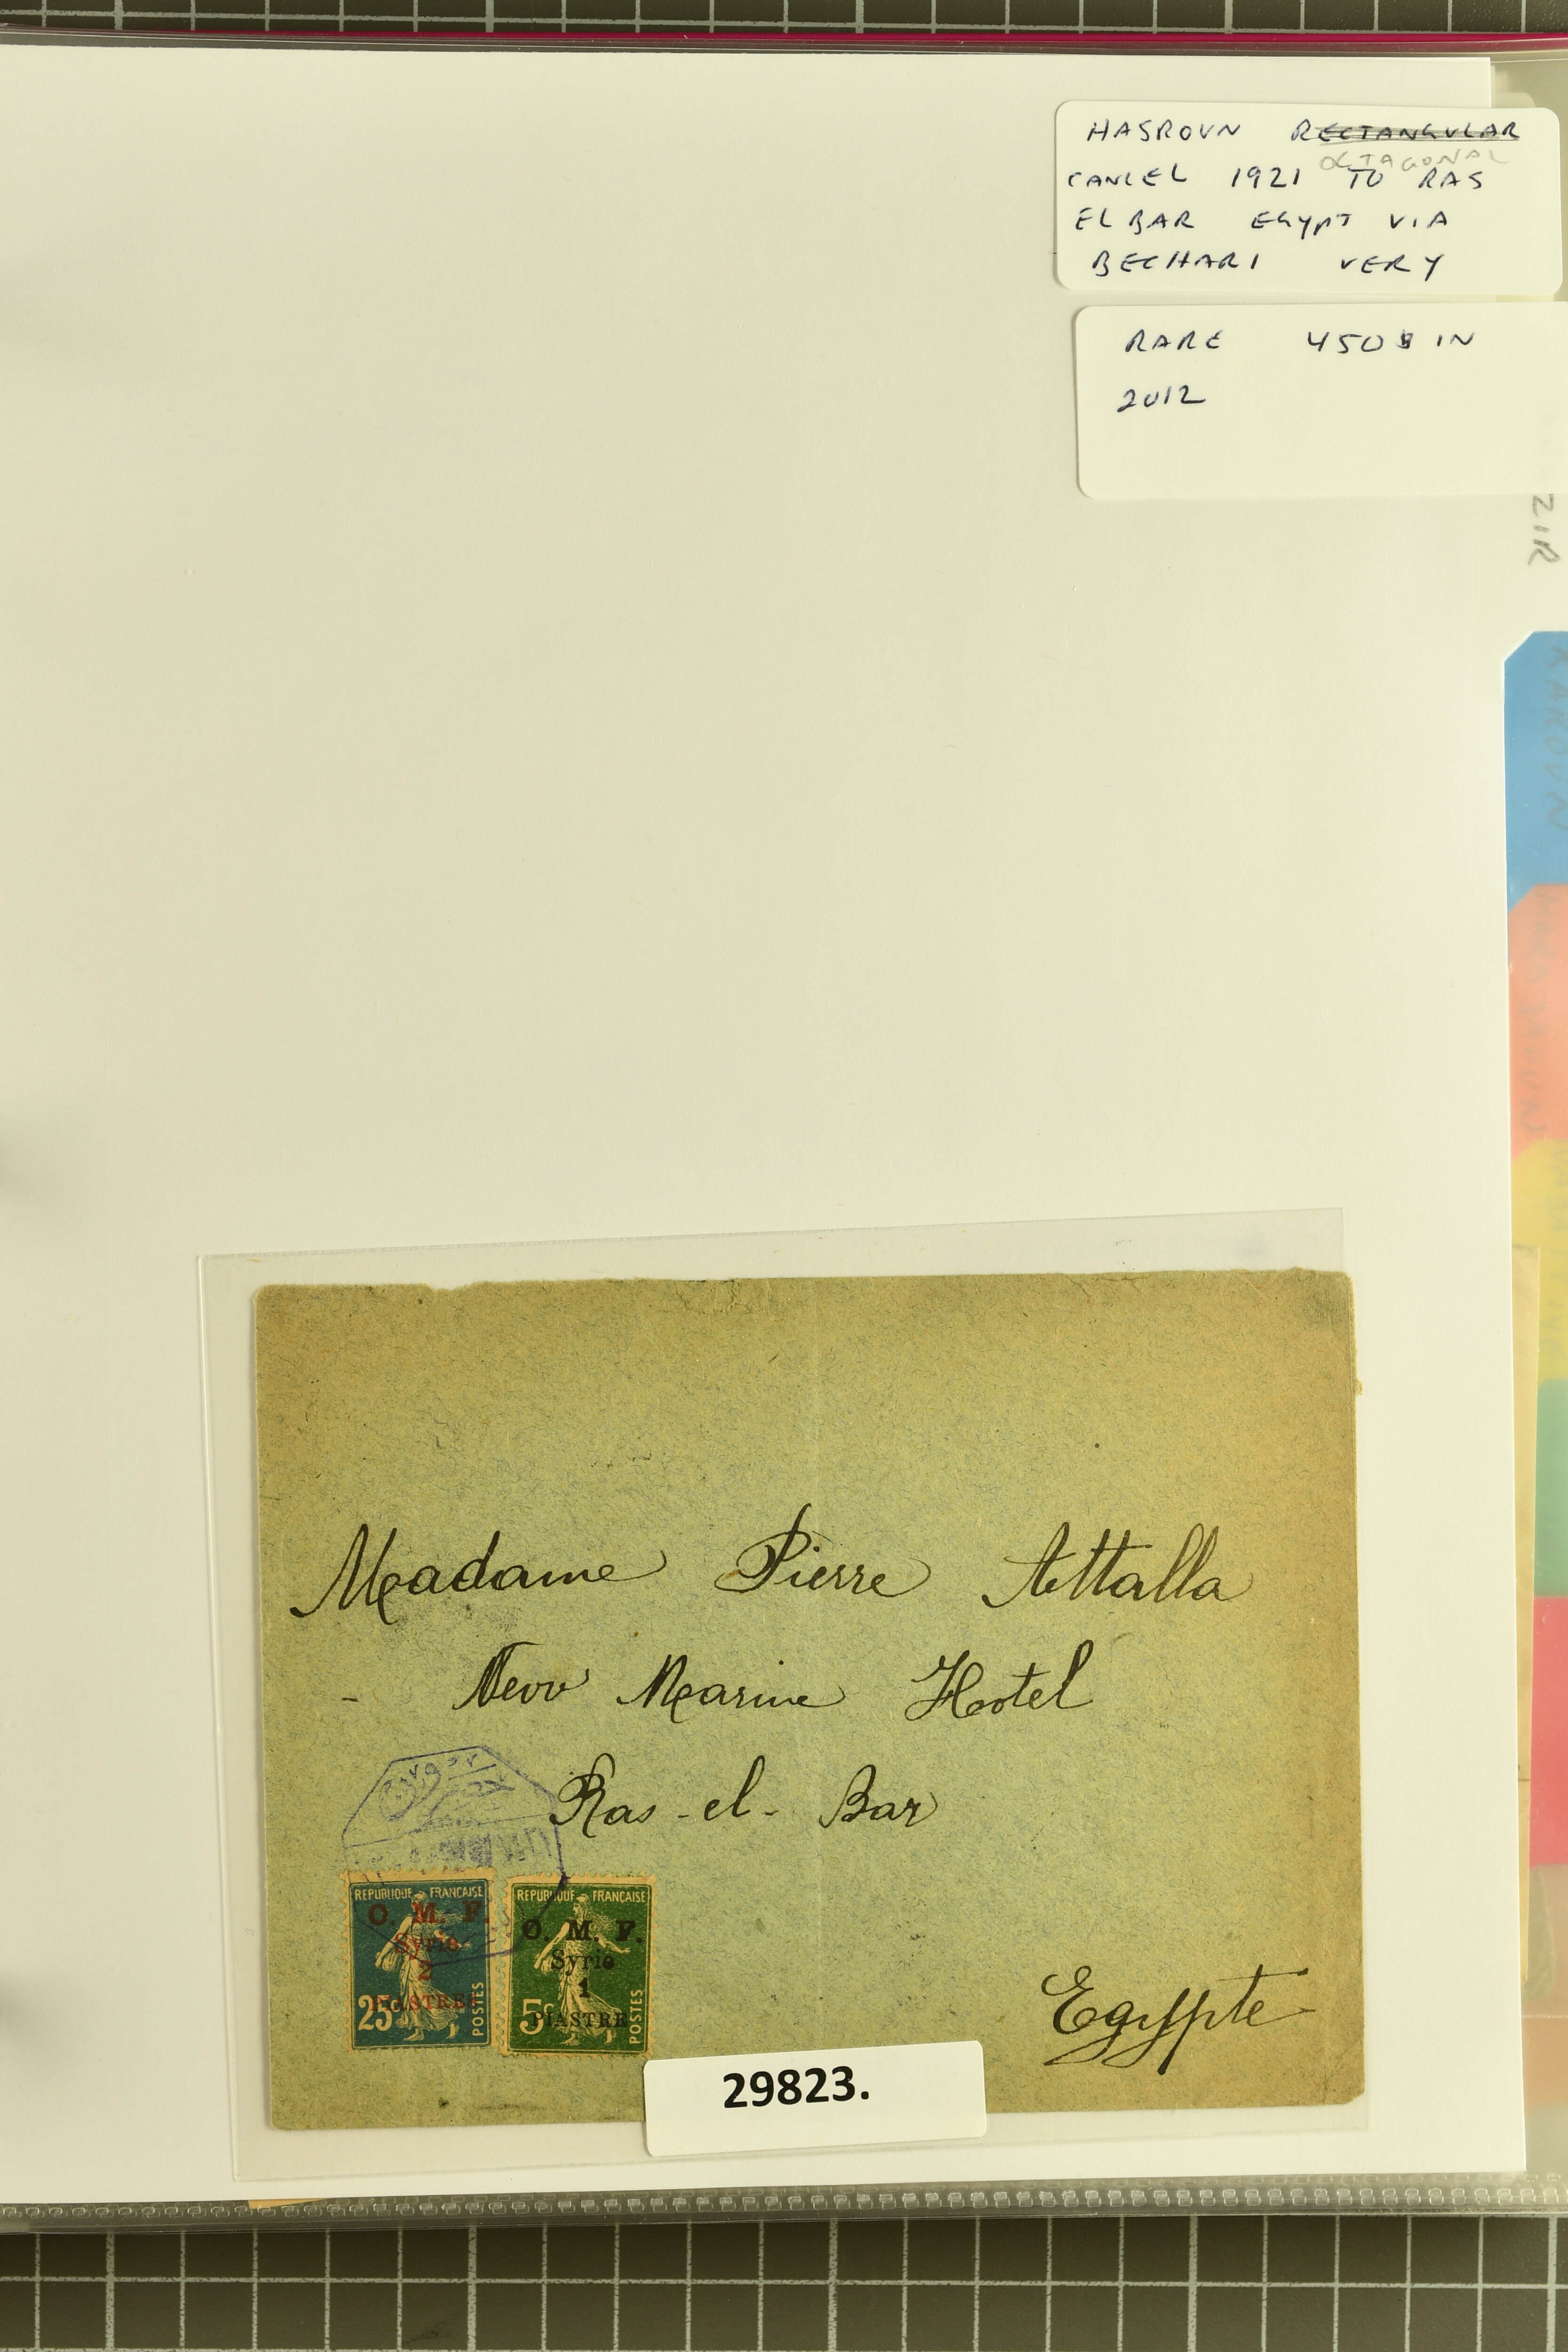 HASROUN RECTANGULAR
OCTAGONAL
CANCEL 1921 TO RAS
EL BAR EGYPT VIA
BECHARI VERY
RARE 450$ IN
2012
ZIR
KAROUN
Madame Pierre Attalla
New Marine Hotel
Ras-el-Bar
Egypte
REPUBLIQUE FRANÇAISE
O. M. F.
Syrie
2
PIASTRES
25c
POSTES
REPUBLIQUE FRANÇAISE
O. M. F.
Syrie
1
PIASTRE
5c
POSTES
29823.